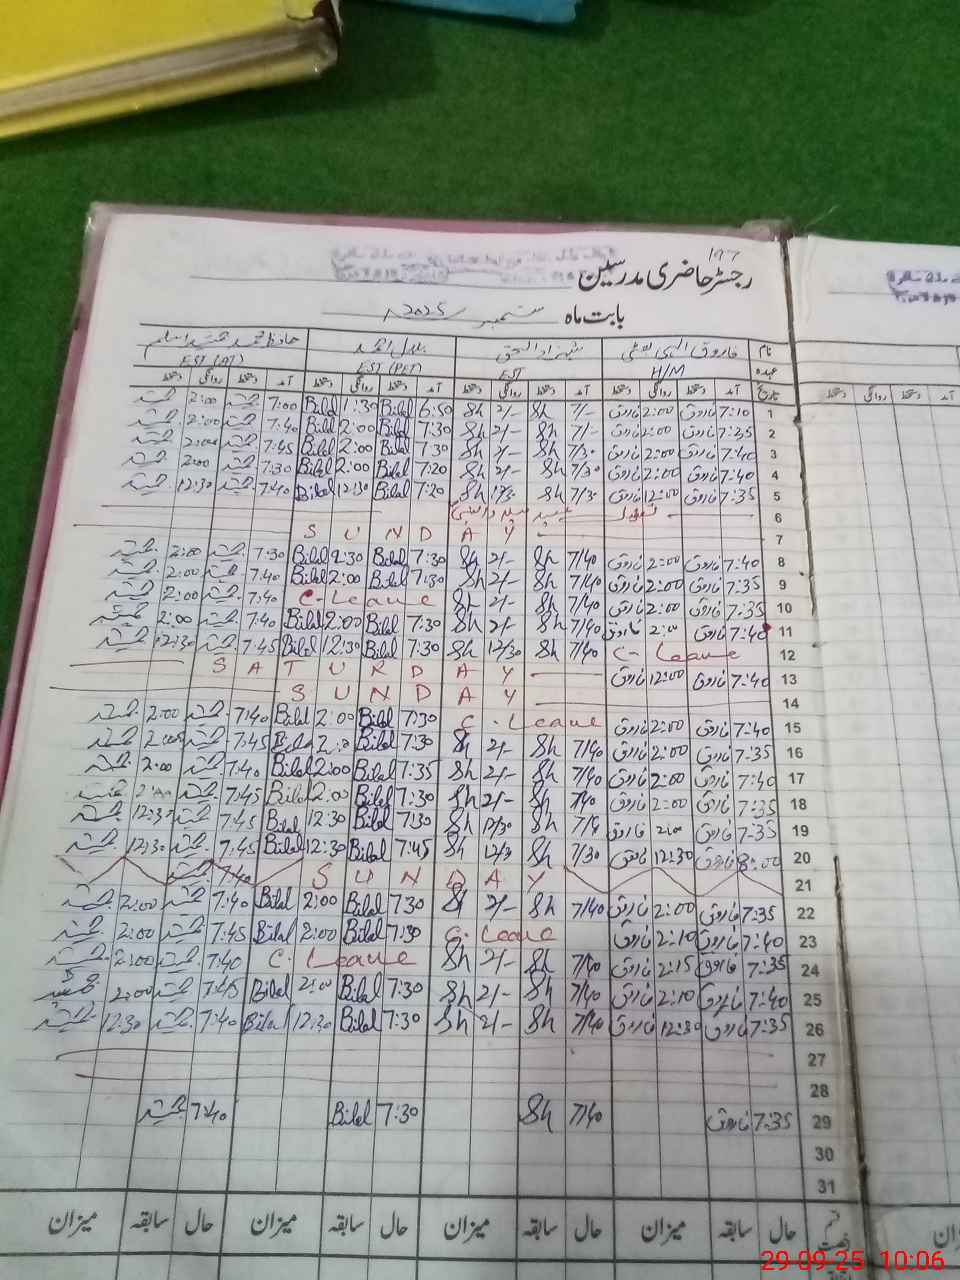 197
رجسٹر حاضری مدرسین
بابت ماہ ستمبر 2025ء
نام فاروق الہی شہزاد الحق بلال احمد حافظ محمد اسلم
عہدہ H/M EST EST (PET) EST (AT)
تاریخ آمد دستخط روانگی دستخط آمد دستخط روانگی دستخط آمد دستخط روانگی دستخط آمد دستخط روانگی دستخط
1 7:10 فاروق 2:00 فاروق 7/- Sh 2/- Sh 6:50 Bilal 1:30 Bilal 7:00 2:00
2 7:35 فاروق 2:00 فاروق 7/- Sh 2/- Sh 7:30 Bilal 2:00 Bilal 7:40 2:00
3 7:40 فاروق 2:00 فاروق 7/30 Sh 2/- Sh 7:30 Bilal 2:00 Bilal 7:45 2:00
4 7:40 فاروق 2:00 فاروق 7/30 Sh 2/- Sh 7:20 Bilal 2:00 Bilal 7:30 2:00
5 7:35 فاروق 12:00 فاروق 7/30 Sh 12/30 Sh 7:20 Bilal 12:30 Bilal 7:40 12:30
6 عید میلاد النبی تعطیل
7 SUNDAY
8 7:40 فاروق 2:00 فاروق 7/40 Sh 2/- Sh 7:30 Bilal 2:30 Bilal 7:30 2:00
9 7:35 فاروق 2:00 فاروق 7/40 Sh 2/- Sh 7:30 Bilal 2:00 Bilal 7:40 2:00
10 7:35 فاروق 2:00 فاروق 7/40 Sh 2/- Sh C-Leave 7:40 2:00
11 7:40 فاروق 2:00 فاروق 7/40 Sh 2/- Sh 7:30 Bilal 2:00 Bilal 7:40 2:00
12 C- Leave 7/40 Sh 12/30 Sh 7:30 Bilal 12:30 Bilal 7:45 12:30
13 7:40 فاروق 12:00 فاروق SATURDAY
14 SUNDAY
15 7:40 فاروق 2:00 فاروق C. Leave 7:30 Bilal 2:00 Bilal 7:40 2:00
16 7:35 فاروق 2:00 فاروق 7/40 Sh 2/- Sh 7:30 Bilal 2:00 Bilal 7:45 2:00
17 7:40 فاروق 2:00 فاروق 7/40 Sh 2/- Sh 7:35 Bilal 2:00 Bilal 7:40 2:00
18 7:35 فاروق 2:00 فاروق 7/40 Sh 2/- Sh 7:30 Bilal 2:00 Bilal 7:45 2:00
19 7:35 فاروق 2:00 فاروق Sh 12/30 Sh 7:30 Bilal 12:30 Bilal 7:45 12:30
20 8:00 فاروق 12:30 فاروق 7/30 Sh 12/3 Sh 7:45 Bilal 12:30 Bilal 7:45 12:30
21 SUNDAY 7:40
22 7:35 فاروق 2:00 فاروق 7/40 Sh 2/- Sh 7:30 Bilal 2:00 Bilal 7:40 2:00
23 7:40 فاروق 2:10 فاروق C. Leave 7:30 Bilal 2:00 Bilal 7:45 2:00
24 7:35 فاروق 2:15 فاروق 7/40 Sh 2/- Sh C. Leave 7:40 2:00
25 7:40 فاروق 2:10 فاروق 7/40 Sh 2/- Sh 7:30 Bilal 2:00 Bilal 7:45 2:00
26 7:35 فاروق 12:30 فاروق 7/40 Sh 2/- Sh 7:30 Bilal 12:30 Bilal 7:40 12:30
27
28
29 7:35 فاروق 7/40 Sh 7:30 Bilal 7:40
30
31
حال سابقہ میزان حال سابقہ میزان حال سابقہ میزان حال سابقہ میزان
29-09-25 10:06